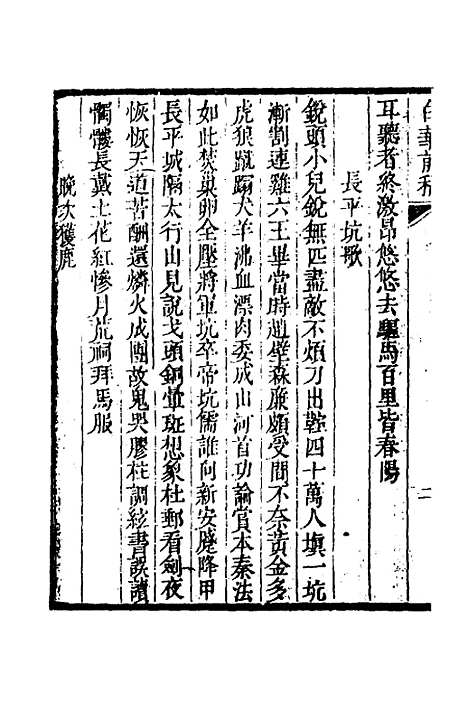 白華前稿
耳聽者終激昂悠悠去驅馬百里皆春陽
長平坑歌
銳頭小兒銳無匹盡敵不煩刀出鞘四十萬人填一坑
漸割連雞六王畢當時趙壁森廉頗受間不奈黃金多
虎狼蹴蹋犬羊沸血漂肉委成山河首功論賞本秦法
如此焚巢卵全壓將軍坑卒帝坑儒誰向新安瘞降甲
長平城隔太行山見說戈頭銅暈斑想象杜郵看劍夜
恢恢天道苦酬還燐火成團故鬼哭膠柱調絃書誤讀
髑髏長戴土花紅慘月荒祠拜馬服
晚次獲鹿